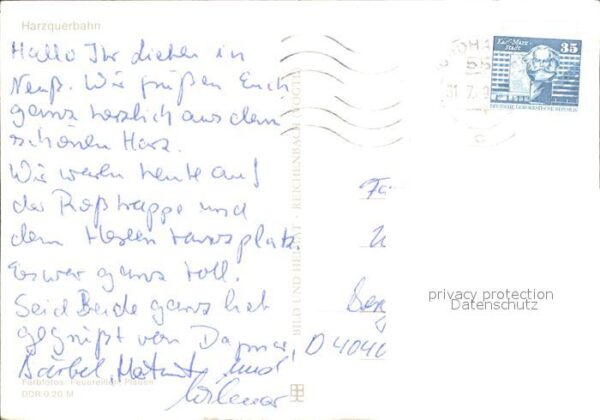 Harzquerbahn
Hallo Ihr Lieben in
Neuß. Wir grüßen Euch
ganz herzlich aus dem
schönen Harz.
Wir waren heute auf
der Roßtrappe und
dem Hexentanzplatz.
Es war ganz toll.
Seid Beide ganz lieb
gegrüßt von Dagmar,
Bärbel, und
Farbfotos: Feuereißen, Plauen
DDR 0,20 M
BILD UND HEIMAT · REICHENBACH (VOGTL)
31.7.
Karl-Marx-
Stadt
35
DEUTSCHE DEMOKRATISCHE REPUBLIK
Fa
D 4040
privacy protection
Datenschutz